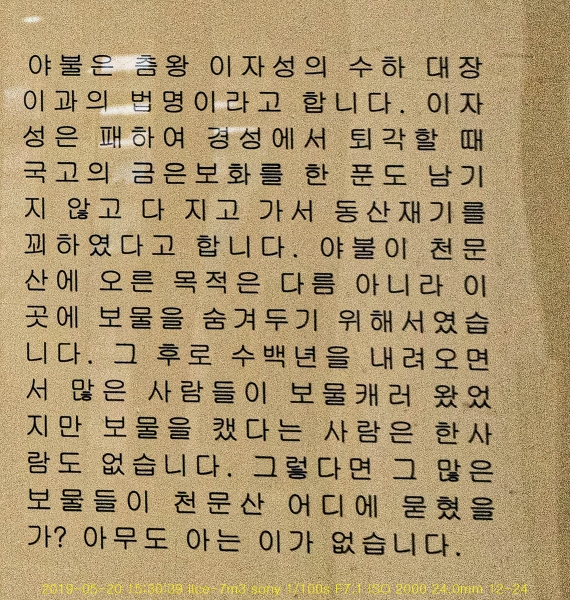 야불은 츰왕 이자성의 수하 대장
이과의 법명이라고 합니다. 이자
성은 패하여 경성에서 퇴각할 때
국고의 금은보화를 한 푼도 남기
지 않고 다 지고 가서 동산재기를
꾀하였다고 합니다. 야불이 천문
산에 오른 목적은 다름 아니라 이
곳에 보물을 숨겨두기 위해서였습
니다. 그 후로 수백년을 내려오면
서 많은 사람들이 보물캐러 왔었
지만 보물을 캤다는 사람은 한사
람도 없습니다. 그렇다면 그 많은
보물들이 천문산 어디에 묻혔을
가? 아무도 아는 이가 없습니다.
2019-05-20 15:50:39 ilce-7m3 sony 1/100s F7.1 ISO 2000 24.0mm 12-24